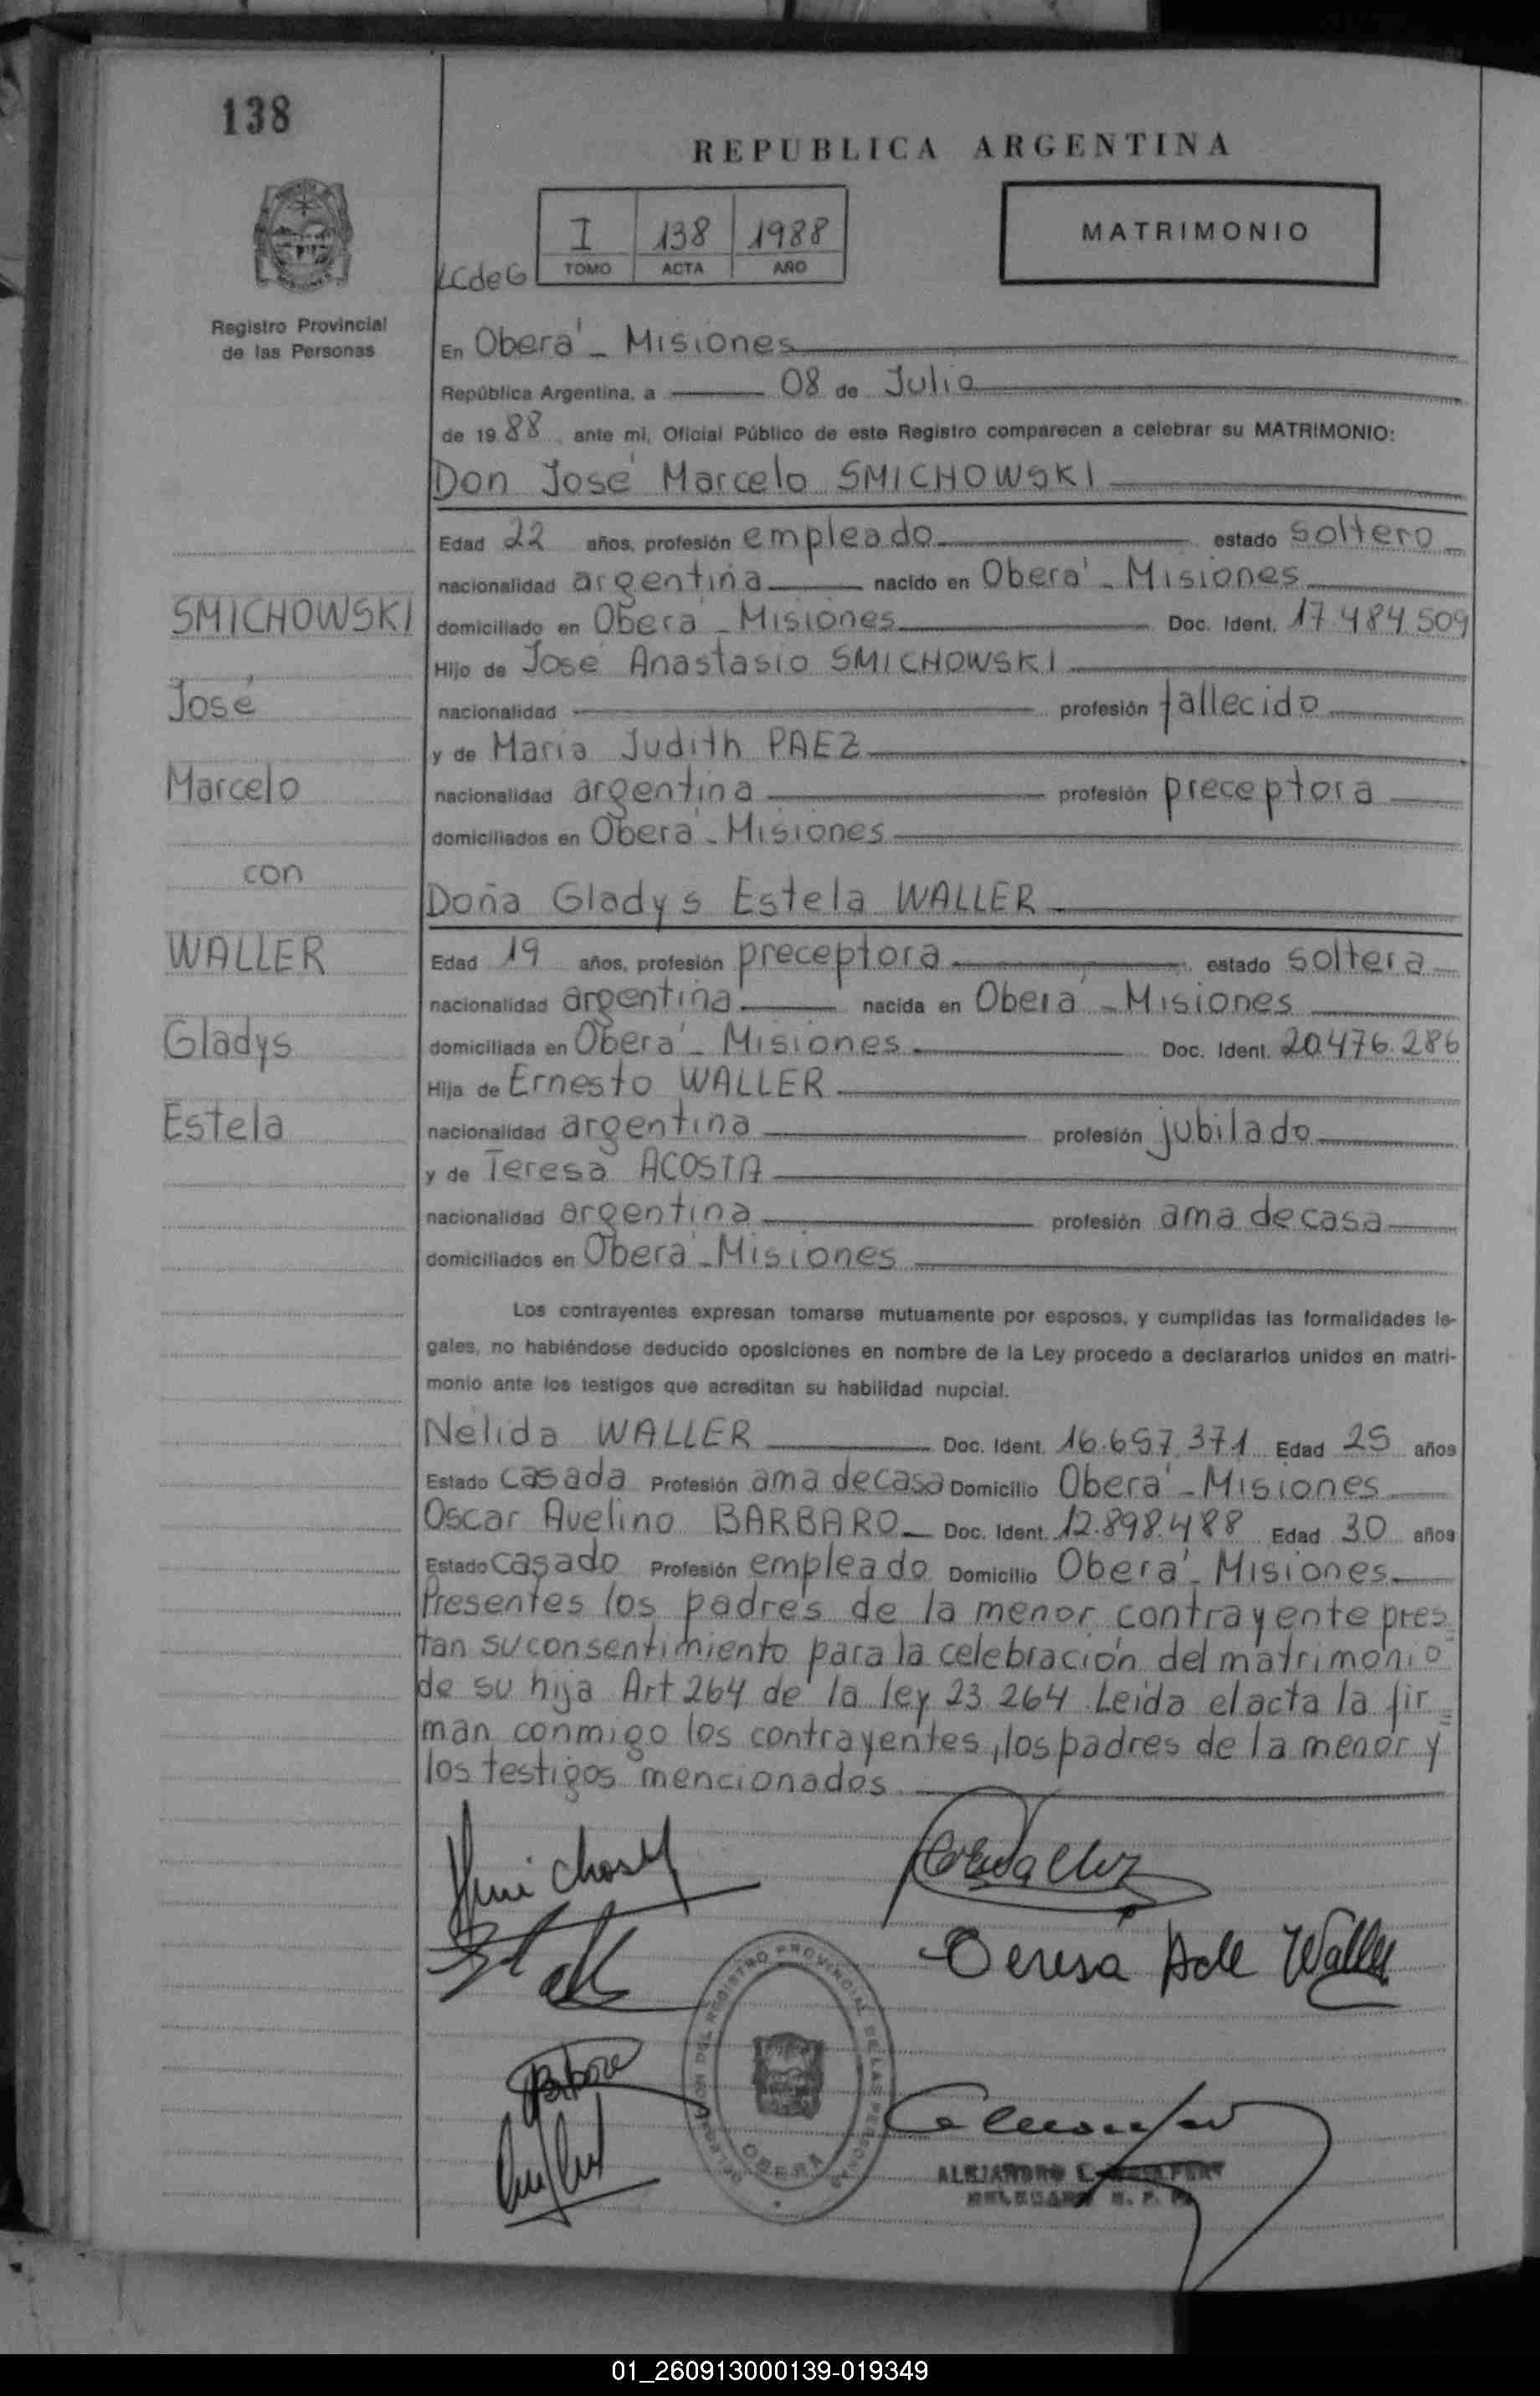 138
REPUBLICA ARGENTINA
I 138 1988
TOMO ACTA AÑO
MATRIMONIO
LCdeG
Registro Provincial
de las Personas
En Oberá - Misiones
República Argentina, a 08 de Julio
de 1988, ante mí, Oficial Público de este Registro comparecen a celebrar su MATRIMONIO:
Don José Marcelo SMICHOWSKI
Edad 22 años, profesión empleado estado soltero
nacionalidad argentina nacido en Oberá - Misiones
SMICHOWSKI
domiciliado en Oberá - Misiones Doc. Ident. 17.484.509
Hijo de José Anastasio SMICHOWSKI
José
nacionalidad profesión fallecido
y de María Judith PAEZ
Marcelo
nacionalidad argentina profesión preceptora
domiciliados en Oberá - Misiones
con
Doña Gladys Estela WALLER
WALLER
Edad 19 años, profesión preceptora estado soltera
nacionalidad argentina nacida en Oberá - Misiones
Gladys
domiciliada en Oberá - Misiones Doc. Ident. 20.476.286
Hija de Ernesto WALLER
Estela
nacionalidad argentina profesión jubilado
y de Teresa ACOSTA
nacionalidad argentina profesión ama de casa
domiciliados en Oberá - Misiones
Los contrayentes expresan tomarse mutuamente por esposos, y cumplidas las formalidades le-
gales, no habiéndose deducido oposiciones en nombre de la Ley procedo a declararlos unidos en matri-
monio ante los testigos que acreditan su habilidad nupcial.
Nélida WALLER Doc. Ident. 16.657.371 Edad 25 años
Estado casada Profesión ama de casa Domicilio Oberá - Misiones
Oscar Avelino BARBARO Doc. Ident. 12.898.488 Edad 30 años
Estado casado Profesión empleado Domicilio Oberá - Misiones
Presentes los padres de la menor contrayente pres
tan su consentimiento para la celebración del matrimonio
de su hija Art 264 de la ley 23.264. Leída el acta la fir=
man conmigo los contrayentes, los padres de la menor y
los testigos mencionados
Teresa A de Waller
DELEGACION DEL REGISTRO PROVINCIAL DE LAS PERSONAS
OBERA
ALEJANDRO
DELEGADO R. P. P.
01_260913000139-019349